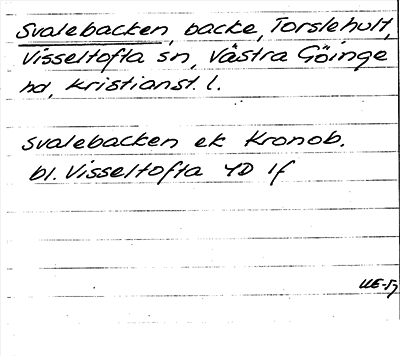 Svalebacken, backe, Torslehult,
Visseltofta sn, Västra Göinge
hd, Kristianst. l.
Svalebacken ek Kronob.
bl. Visseltofta 4D 1f